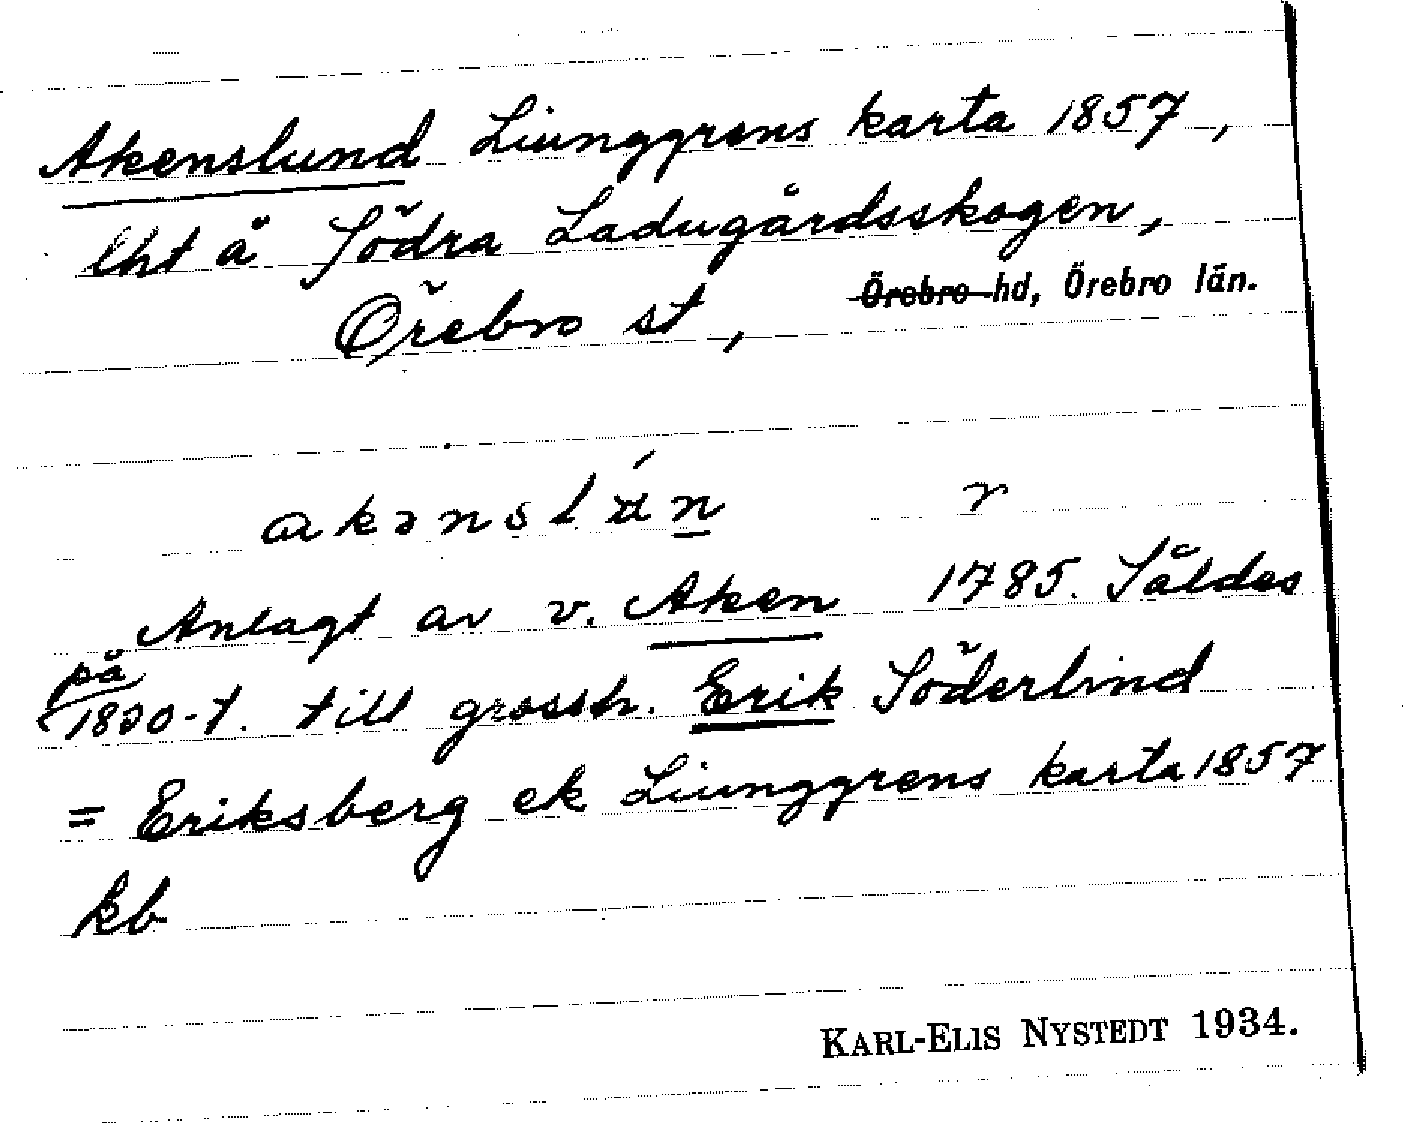 Akenslund Liunggrens karta 1857,
lht å Södra Ladugårdsskogen,
Örebro st, Örebro hd, Örebro län.
akənslún r
Anlagt av v. Aken 1785. Såldes
på
1820-t. till grossh. Erik Söderlind
= Eriksberg ek Liunggrens karta 1857
kb
KARL-ELIS NYSTEDT 1934.